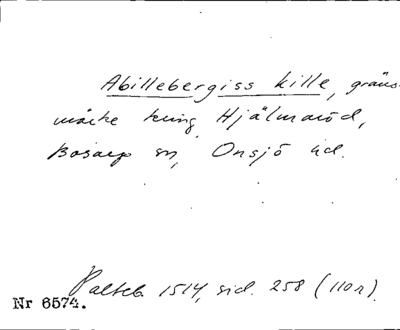 Abillebergiss kille, gräns-
märke kring Hjälmaröd,
Bosarp sn, Onsjö hd.
Palteb. 1514, sid. 258 (110 r)
Nr 6574.